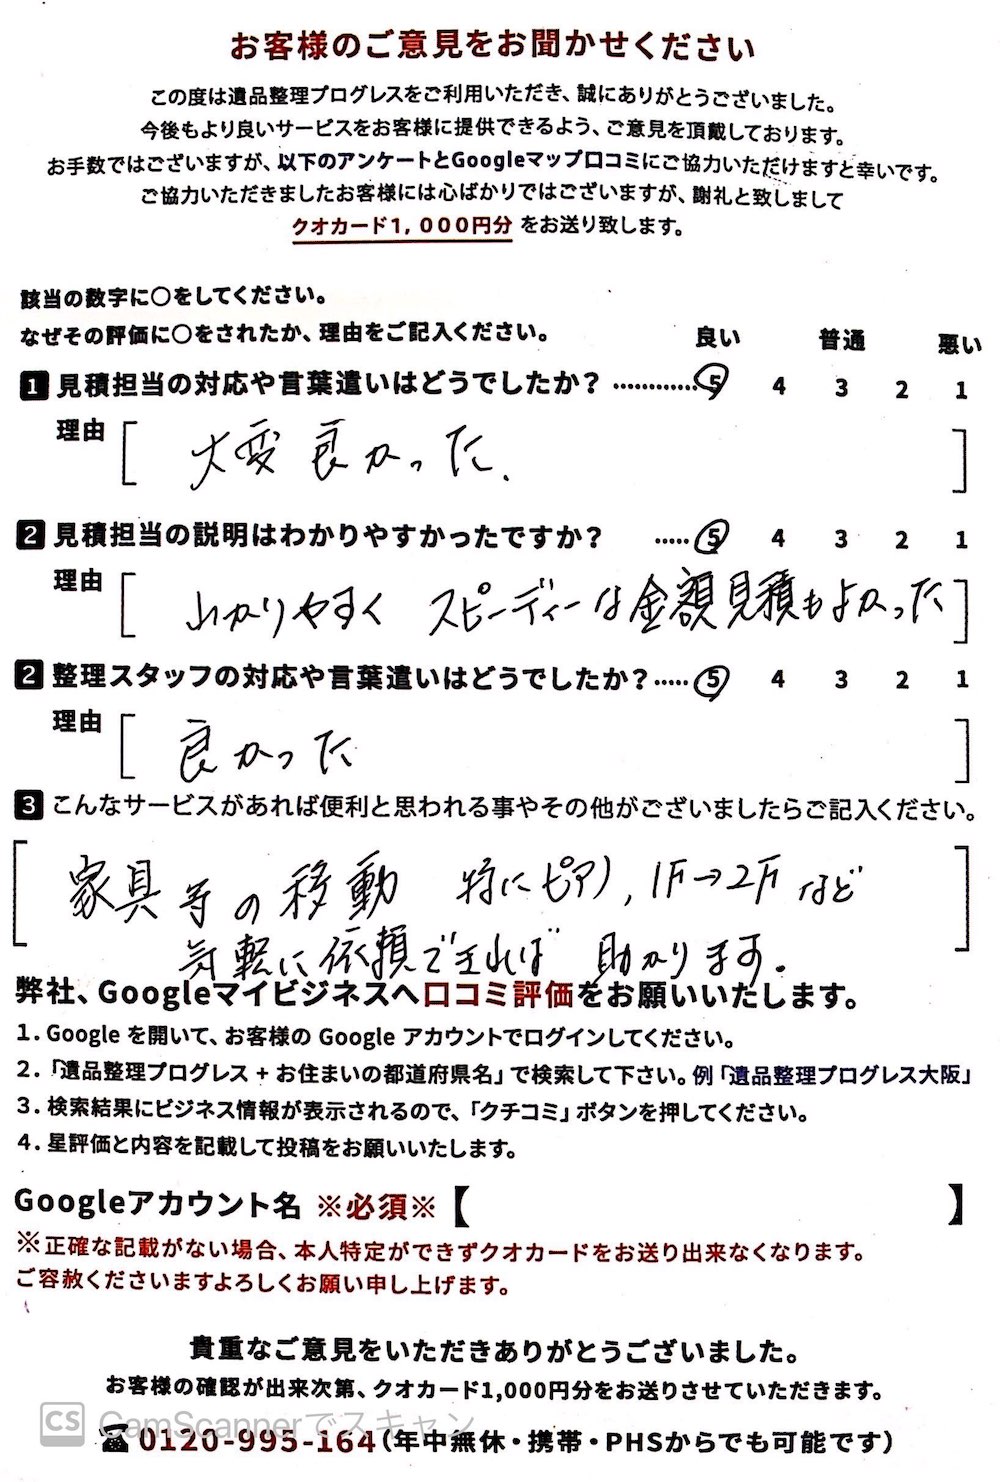 お客様のご意見をお聞かせください
この度は遺品整理プログレスをご利用いただき、誠にありがとうございました。
今後もより良いサービスをお客様に提供できるよう、ご意見を頂戴しております。
お手数ではございますが、以下のアンケートとGoogleマップ口コミにご協力いただけますと幸いです。
ご協力いただきましたお客様には心ばかりではございますが、謝礼と致しまして
クオカード1,000円分 をお送り致します。
該当の数字に〇をしてください。
なぜその評価に〇をされたか、理由をご記入ください。
良い 普通 悪い
1 見積担当の対応や言葉遣いはどうでしたか？ ・・・・・・・・・・・・ 5 4 3 2 1
理由 [ 大変良かった. ]
2 見積担当の説明はわかりやすかったですか？ ・・・・・ 5 4 3 2 1
理由 [ わかりやすく スピーディーな金額見積もよかった ]
2 整理スタッフの対応や言葉遣いはどうでしたか？ ・・・・・ 5 4 3 2 1
理由 [ 良かった ]
3 こんなサービスがあれば便利と思われる事やその他がございましたらご記入ください。
[ 家具等の移動 特にピアノ, 1F→2Fなど
気軽に依頼できれば 助かります. ]
弊社、Googleマイビジネスへ口コミ評価をお願いいたします。
1. Google を開いて、お客様の Google アカウントでログインしてください。
2. 「遺品整理プログレス + お住まいの都道府県名」で検索して下さい。例「遺品整理プログレス大阪」
3. 検索結果にビジネス情報が表示されるので、「クチコミ」ボタンを押してください。
4. 星評価と内容を記載して投稿をお願いいたします。
Googleアカウント名 ※必須※【 】
※正確な記載がない場合、本人特定ができずクオカードをお送り出来なくなります。
ご容赦くださいますよろしくお願い申し上げます。
貴重なご意見をいただきありがとうございました。
お客様の確認が出来次第、クオカード1,000円分をお送りさせていただきます。
CS CamScannerでスキャン
☎ 0120-995-164（年中無休・携帯・PHSからでも可能です）